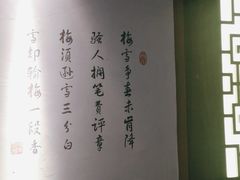 梅雪争春未肯降
骚人搁笔费评章
梅须逊雪三分白
雪却输梅一段香